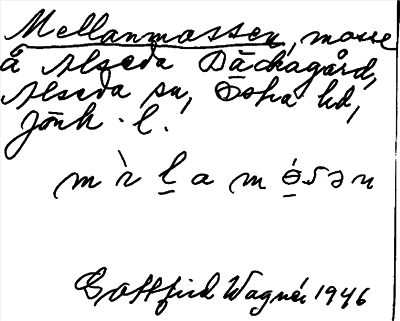 Mellanmossen, mosse
å Alseda Bäckagård,
Alseda sn, Östra hd,
Jönk. l.
m ì l a m ó s ə n
Gottfrid Wagnér 1946